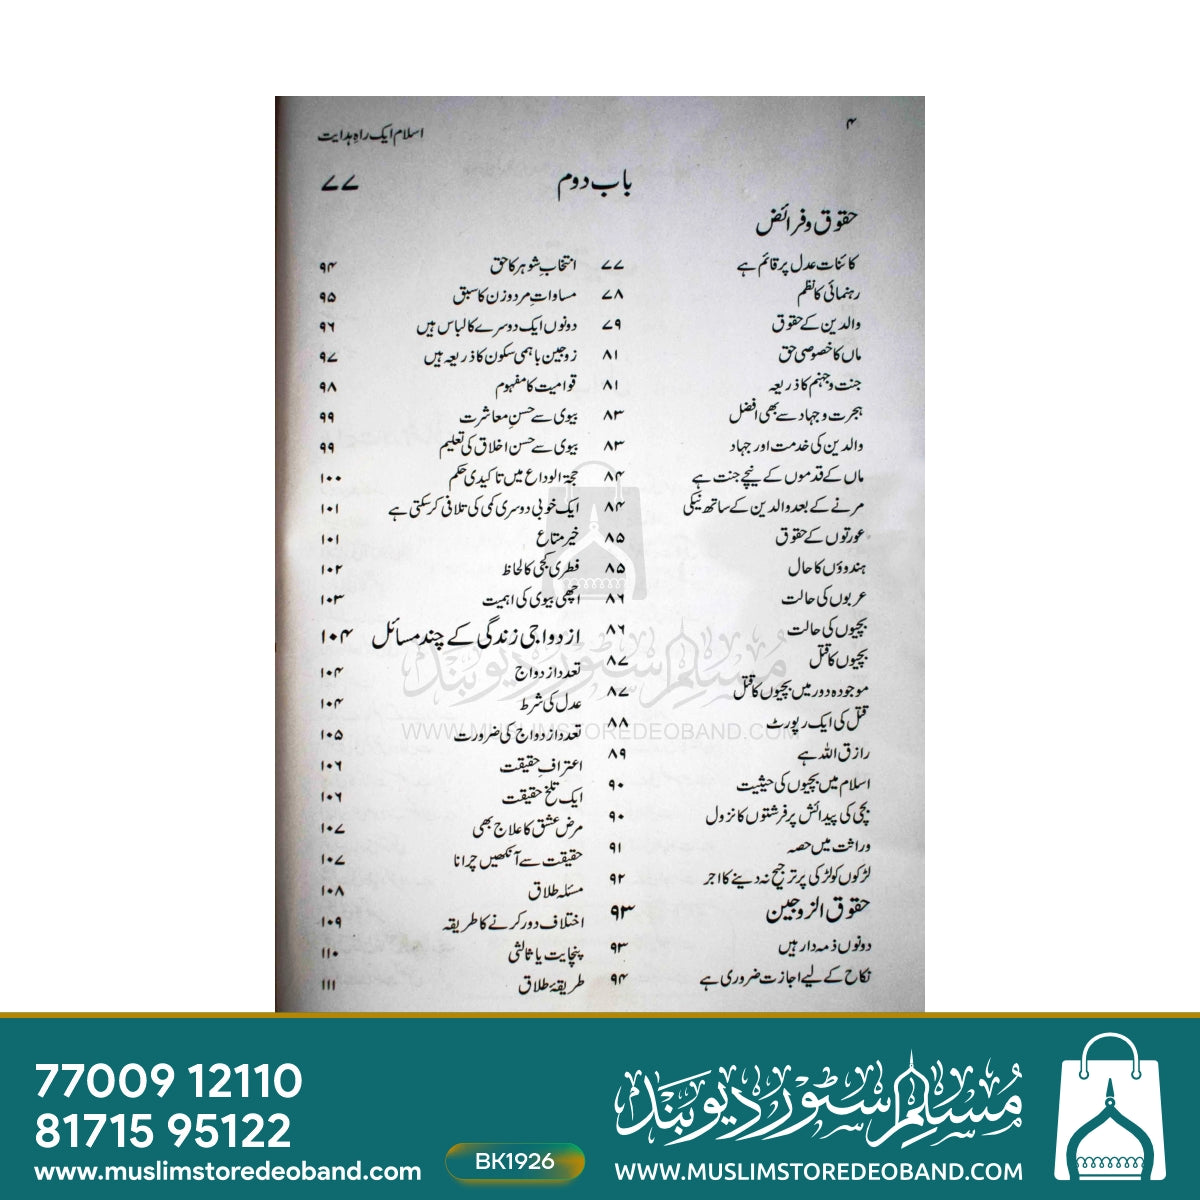 ۴
اسلام ایک راہِ ہدایت
باب دوم ۷۷
حقوق و فرائض
کائنات عدل پر قائم ہے ۷۷
رہنمائی کا نظم ۷۸
والدین کے حقوق ۷۹
ماں کا خصوصی حق ۸۱
جنت و جہنم کا ذریعہ ۸۱
ہجرت و جہاد سے بھی افضل ۸۳
والدین کی خدمت اور جہاد ۸۳
ماں کے قدموں کے نیچے جنت ہے ۸۴
مرنے کے بعد والدین کے ساتھ نیکی ۸۴
عورتوں کے حقوق ۸۵
ہندوؤں کا حال ۸۵
عربوں کی حالت ۸۶
بچیوں کی حالت ۸۶
بچیوں کا قتل ۸۷
موجودہ دور میں بچیوں کا قتل ۸۷
قتل کی ایک رپورٹ ۸۸
رازق اللہ ہے ۸۹
اسلام میں بچیوں کی حیثیت ۹۰
بچی کی پیدائش پر فرشتوں کا نزول ۹۰
وراثت میں حصہ ۹۱
لڑکوں کو لڑکی پر ترجیح نہ دینے کا اجر ۹۲
حقوق الزوجین ۹۳
دونوں ذمہ دار ہیں ۹۳
نکاح کے لیے اجازت ضروری ہے ۹۴
انتخابِ شوہر کا حق ۹۴
مساواتِ مرد و زن کا سبق ۹۵
دونوں ایک دوسرے کا لباس ہیں ۹۶
زوجین باہمی سکون کا ذریعہ ہیں ۹۷
قوامیت کا مفہوم ۹۸
بیوی سے حسنِ معاشرت ۹۹
بیوی سے حسن اخلاق کی تعلیم ۹۹
حجۃ الوداع میں تاکیدی حکم ۱۰۰
ایک خوبی دوسری کمی کی تلافی کر سکتی ہے ۱۰۱
خیر متاع ۱۰۱
فطری کجی کا لحاظ ۱۰۲
اچھی بیوی کی اہمیت ۱۰۳
ازدواجی زندگی کے چند مسائل ۱۰۴
تعدد ازدواج ۱۰۴
عدل کی شرط ۱۰۴
تعدد ازدواج کی ضرورت ۱۰۵
اعترافِ حقیقت ۱۰۶
ایک تلخ حقیقت ۱۰۶
مرض عشق کا علاج بھی ۱۰۷
حقیقت سے آنکھیں چرانا ۱۰۷
مسئلہ طلاق ۱۰۸
اختلاف دور کرنے کا طریقہ ۱۰۹
پنچایت یا ثالثی ۱۱۰
طریقۂ طلاق ۱۱۱
مسلم سٹور دیوبند
WWW.MUSLIMSTOREDEOBAND.COM
77009 12110
81715 95122
www.muslimstoredeoband.com
BK1926
مسلم سٹور دیوبند
WWW.MUSLIMSTOREDEOBAND.COM